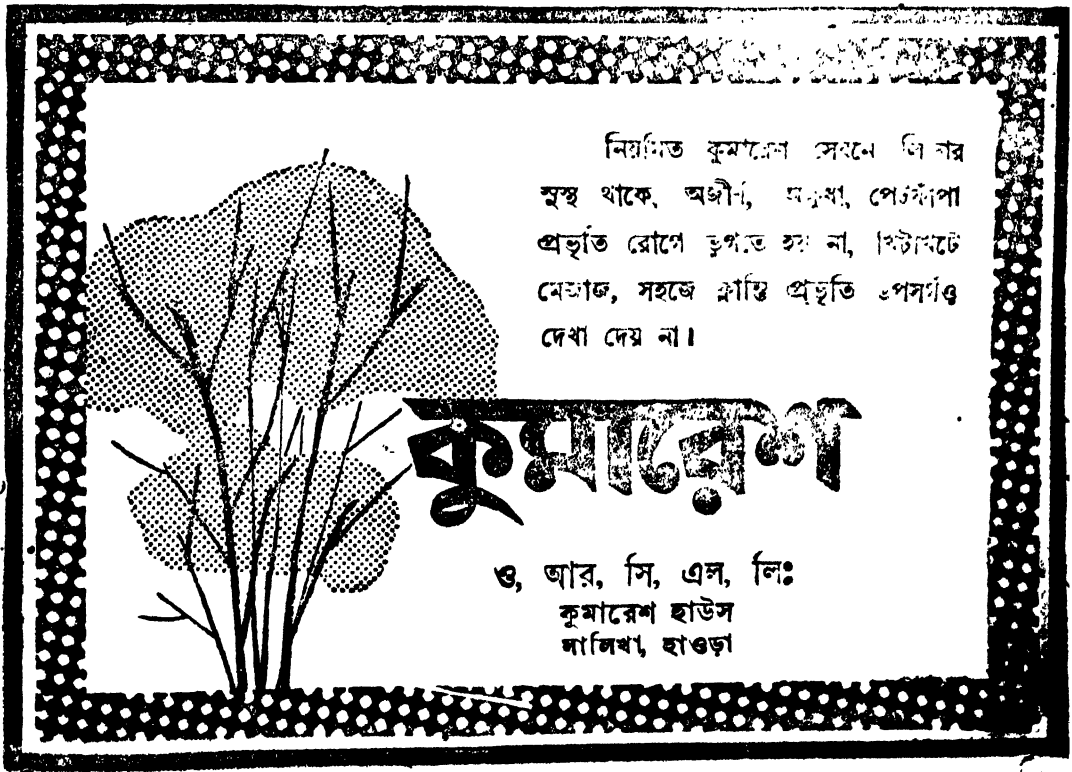 নিয়মিত কুমারেশ সেবনে লিভার
সুস্থ থাকে, অজীর্ণ, অক্ষুধা, পেটফাঁপা
প্রভৃতি রোগে ভুগতে হয় না, খিটখিটে
মেজাজ, সহজে ক্লান্তি প্রভৃতি উপসর্গও
দেখা দেয় না।
কুমারেশ
ও, আর, সি, এল, লিঃ
কুমারেশ হাউস
সালিখা, হাওড়া